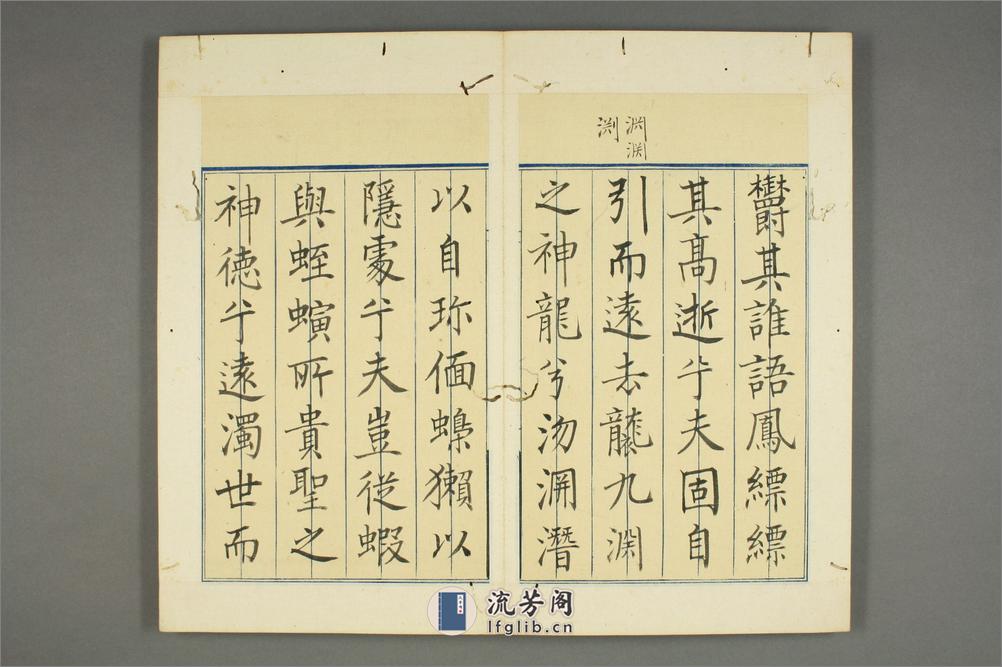 渊渆
渕
欝其誰語鳳縹縹
其髙逝兮夫固自
引而遠去襲九渊
之神龍兮沕淵潛
以自珍偭蟂獺以
隱處兮夫豈從蝦
與蛭螾所貴聖之
神徳兮遠濁世而
流芳阁
lfglib.cn